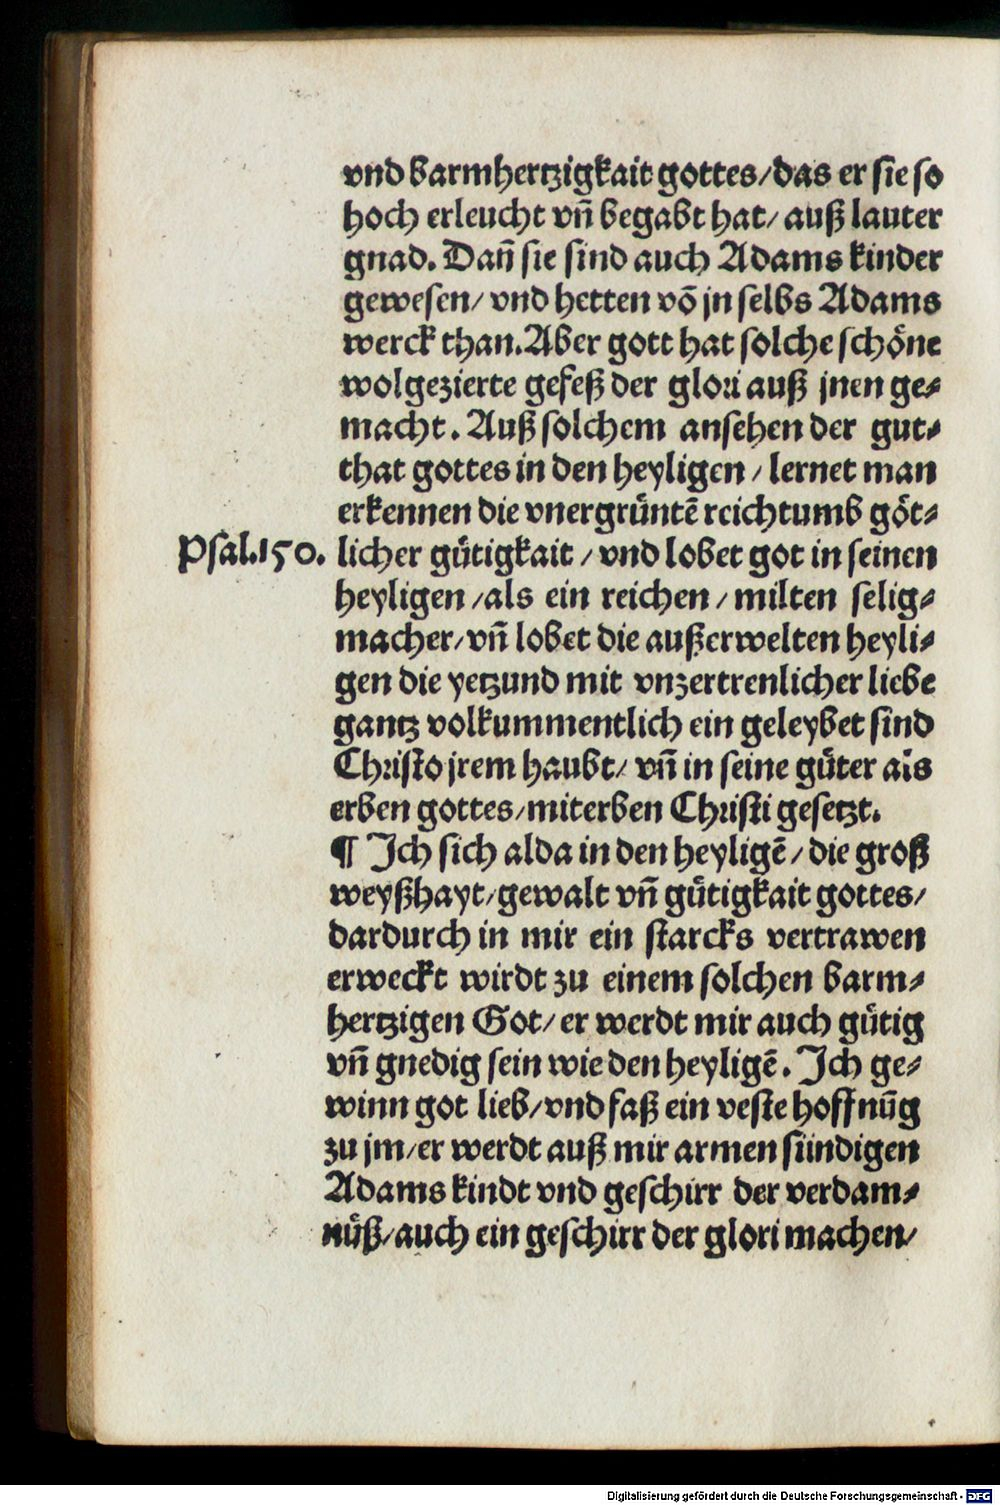 vnd barmhertzigkait gottes/das er sie so
hoch erleucht vñ begabt hat/ auß lauter
gnad. Dañ sie sind auch Adams kinder
gewesen/ vnd hetten võ jn selbs Adams
werck than. Aber gott hat solche schöne
wolgezierte gefeß der glori auß jnen ge-
macht. Auß solchem ansehen der gut-
that gottes in den heyligen / lernet man
erkennen die vnergrüntẽ reichtumb göt-
Psal.150. licher gütigkait / vnd lobet got in seinen
heyligen /als ein reichen / milten selig-
macher/vñ lobet die außerwelten heyli-
gen die yetzund mit vnzertrenlicher liebe
gantz volkummentlich ein geleybet sind
Christo jrem haubt/ vñ in seine güter als
erben gottes/miterben Christi gesetzt.
¶ Ich sich alda in den heyligẽ/die groß
weyßhayt/gewalt vñ gütigkait gottes/
dardurch in mir ein starcks vertrawen
erweckt wirdt zu einem solchen barm-
hertzigen Got/ er werdt mir auch gütig
vñ gnedig sein wie den heyligẽ. Ich ge-
winn got lieb/vnd faß ein veste hoffnũg
zu jm/er werdt auß mir armen sündigen
Adams kindt vnd geschirr der verdam-
nüß/auch ein geschirr der glori machen/
Digitalisierung gefördert durch die Deutsche Forschungsgemeinschaft - DFG